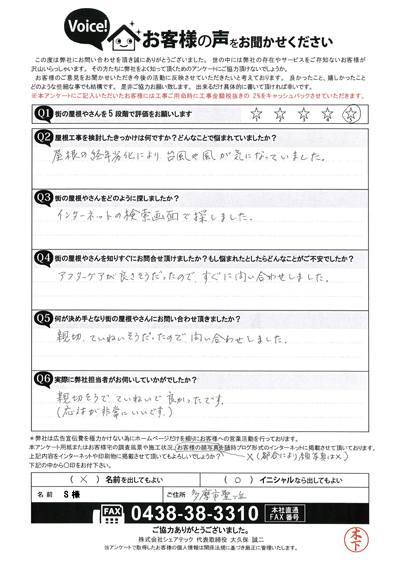 Voice!
お客様の声をお聞かせください
この度は弊社にお問い合わせを頂き誠にありがとうございました。世の中には弊社の存在やサービスをご存知ないお客様が
沢山いらっしゃいます。その方たちに弊社をよく知って頂くためのアンケートにご協力頂けないでしょうか。
お客様のご意見をお聞かせいただき今後の活動に反映させていただきたいと考えております。良かったこと、嬉しかったこと
どのような些細な事でも結構です。是非ご協力お願い致します。出来るだけ具体的に書いて頂ければ幸いです。
※本アンケートにご記入いただいたお客様には工事ご用命時に工事金額税抜きの 2%をキャッシュバックさせていただきます。
Q1 街の屋根やさんを5段階で評価をお願いします
☆ ☆ ☆ ☆ ☆
Q2 屋根工事を検討したきっかけは何ですか?どんなことで悩まれていましたか?
屋根の経年劣化により台風や風が気になっていました。
Q3 街の屋根やさんをどのように探しましたか?
インターネットの検索画面で探しました。
Q4 街の屋根やさんを知りすぐにお問合せ頂けましたか?もし悩まれたとしたらどんなことがご不安でしたか?
アフターケアが良さそうだったので、すぐに問い合わせしました。
Q5 何が決め手となり街の屋根やさんにお問い合わせ頂きましたか?
親切、ていねいそうだったので、問い合わせしました。
Q6 実際に弊社担当者がお伺いしていかがでしたか?
親切そうで、ていねいで良かったです。
(応対が非常にいいです。)
*弊社は広告宣伝費を極力かけない為にホームページだけを頼りにお客様への営業活動を行っております。
本アンケート用紙またはお客様宅の調査風景や施工状況、お客様の顔写真を随時ブログ形式のインターネットに掲載させて頂いております。
上記内容をインターネットや印刷物に掲載させて頂いてもよろしいでしょうか?
×(都合により顔写真は×)
下記の中から〇印をお付下さい。
(×)名前を出してもよい
(○)イニシャルなら出してもよい
名前 S様
ご住所 多摩市聖ヶ丘
FAX 0438-38-3310 本社直通 FAX番号
ご協力ありがとうございました。
株式会社シェアテック 代表取締役 大久保 誠二
当アンケートで取得したお客様の個人情報は関係法規に基づき厳正に管理いたします。
木下